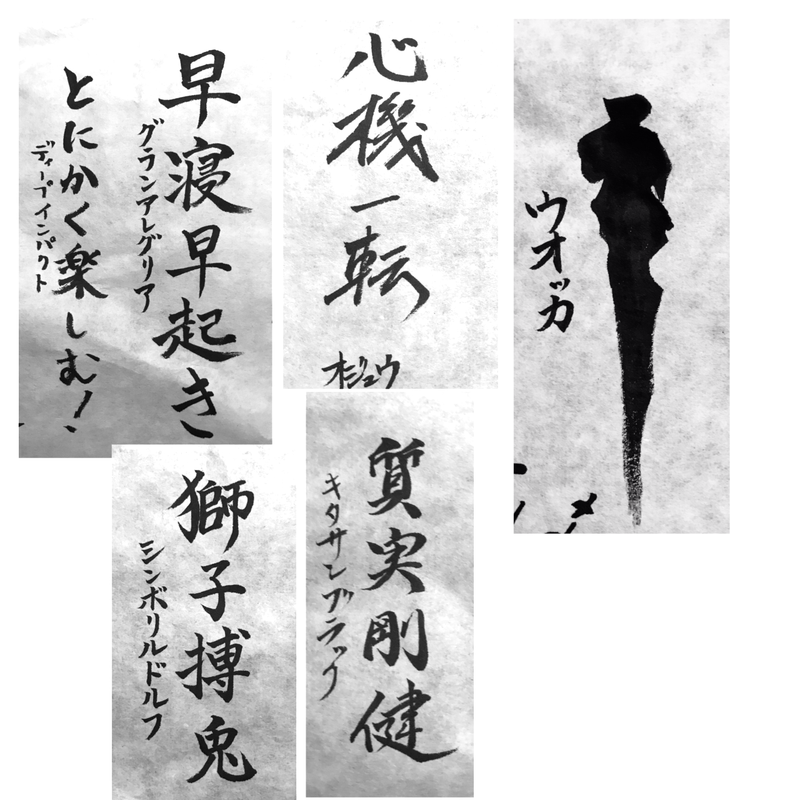 早寝早起き
グランアレグリア
とにかく楽しむ！
ディープインパクト
心機一転
オジュウ
ウオッカ
獅子搏兎
シンボリルドルフ
質実剛健
キタサンブラック